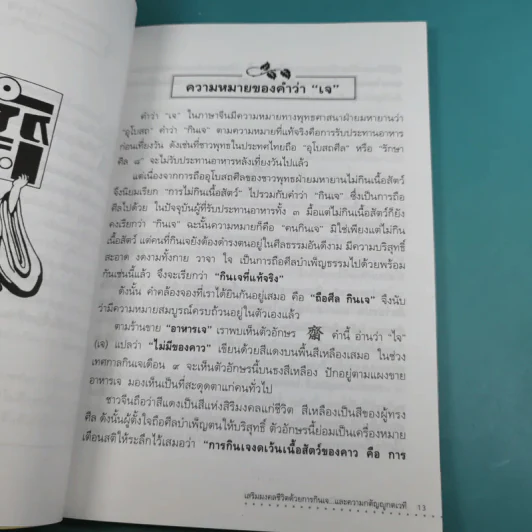 ความหมายของคำว่า “เจ”
คำว่า “เจ” ในภาษาจีนมีความหมายทางพุทธศาสนาฝ่ายมหายานว่า
“อุโบสถ” คำว่า “กินเจ” ตามความหมายที่แท้จริงคือการรับประทานอาหาร
ก่อนเที่ยงวัน ดังเช่นที่ชาวพุทธในประเทศไทยถือ “อุโบสถศีล” หรือ “รักษา
ศีล ๘” จะไม่รับประทานอาหารหลังเที่ยงวันไปแล้ว
แต่เนื่องจากการถืออุโบสถศีลของชาวพุทธฝ่ายมหายานไม่กินเนื้อสัตว์
จึงนิยมเรียก “การไม่กินเนื้อสัตว์” ไปรวมกับคำว่า “กินเจ” ซึ่งเป็นการถือ
ศีลไปด้วย ในปัจจุบันผู้ที่รับประทานอาหารทั้ง ๓ มื้อแต่ไม่กินเนื้อสัตว์ก็ยัง
คงเรียกว่า “กินเจ” ฉะนั้นความหมายก็คือ “คนกินเจ” มิใช่เพียงแต่ไม่กิน
เนื้อสัตว์ แต่คนที่กินเจยังต้องดำรงตนอยู่ในศีลธรรมอันดีงาม มีความบริสุทธิ์
สะอาด งดงามทั้งกาย วาจา ใจ เป็นการถือศีลบำเพ็ญธรรมไปด้วยพร้อม
กันเช่นนี้แล้ว จึงจะเรียกว่า “กินเจที่แท้จริง”
ดังนั้น คำคล้องจองที่เราได้ยินกันอยู่เสมอ คือ “ถือศีล กินเจ” จึงนับ
ว่ามีความหมายสมบูรณ์ครบถ้วนอยู่ในตัวเองแล้ว
ตามร้านขาย “อาหารเจ” เราพบเห็นตัวอักษร 齋 คำนี้ อ่านว่า “ไจ”
(เจ) แปลว่า “ไม่มีของคาว” เขียนด้วยสีแดงบนพื้นสีเหลืองเสมอ ในช่วง
เทศกาลกินเจเดือน ๙ จะเห็นตัวอักษรนี้บนธงสีเหลือง ปักอยู่ตามแผงขาย
อาหารเจ มองเห็นเป็นที่สะดุดตาแก่คนทั่วไป
ชาวจีนถือว่าสีแดงเป็นสีแห่งสิริมงคลแก่ชีวิต สีเหลืองเป็นสีของผู้ทรง
ศีล ดังนั้นผู้ตั้งใจถือศีลบำเพ็ญตนให้บริสุทธิ์ ตัวอักษรนี้ย่อมเป็นเครื่องหมาย
เตือนสติให้ระลึกไว้เสมอว่า “การกินเจงดเว้นเนื้อสัตว์ของคาว คือ การ
เสริมมงคลชีวิตด้วยการกินเจ...และความกตัญญูกตเวที 13